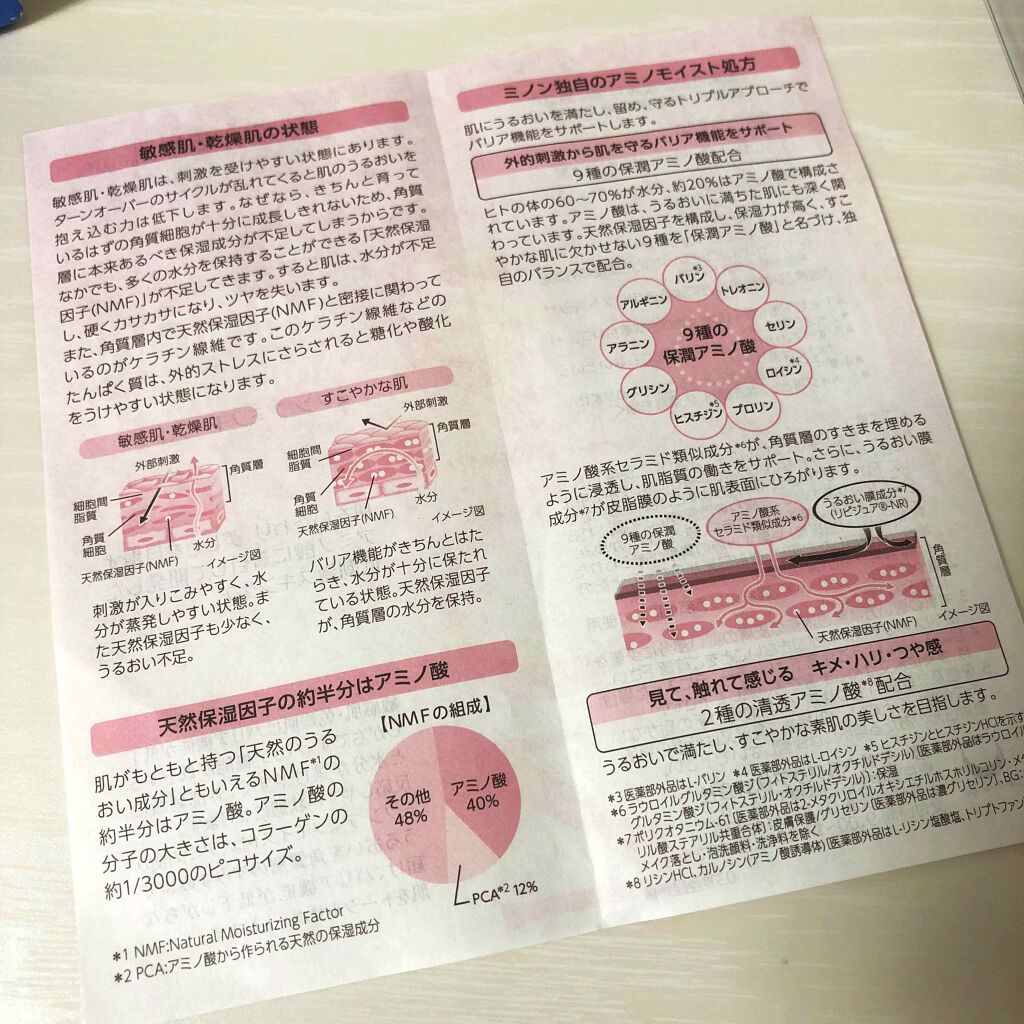 敏感肌・乾燥肌の状態
敏感肌・乾燥肌は、刺激を受けやすい状態にあります。
ターンオーバーのサイクルが乱れてくると肌のうるおいを
抱え込む力は低下します。なぜなら、きちんと育って
いるはずの角質細胞が十分に成長しきれないため、角質
層に本来あるべき保湿成分が不足してしまうからです。
なかでも、多くの水分を保持することができる「天然保湿
因子(NMF)」が不足してきます。すると肌は、水分が不足
し、硬くカサカサになり、ツヤを失います。
また、角質層内で天然保湿因子(NMF)と密接に関わって
いるのがケラチン線維です。このケラチン線維などの
たんぱく質は、外的ストレスにさらされると糖化や酸化
をうけやすい状態になります。
敏感肌・乾燥肌
外部刺激
角質層
細胞間
脂質
角質
細胞
水分
天然保湿因子(NMF)
イメージ図
刺激が入りこみやすく、水
分が蒸発しやすい状態。ま
た天然保湿因子も少なく、
うるおい不足。
すこやかな肌
外部刺激
角質層
細胞間
脂質
角質
細胞
水分
天然保湿因子(NMF)
イメージ図
バリア機能がきちんとはた
らき、水分が十分に保たれ
ている状態。天然保湿因子
が、角質層の水分を保持。
天然保湿因子の約半分はアミノ酸
肌がもともと持つ「天然のうる
おい成分」ともいえるNMF*1の
約半分はアミノ酸。アミノ酸の
分子の大きさは、コラーゲンの
約1/3000のピコサイズ。
【NMFの組成】
その他
48%
アミノ酸
40%
PCA*2 12%
*1 NMF:Natural Moisturizing Factor
*2 PCA:アミノ酸から作られる天然の保湿成分
ミノン独自のアミノモイスト処方
肌にうるおいを満たし、留め、守るトリプルアプローチで
バリア機能をサポートします。
外的刺激から肌を守るバリア機能をサポート
9種の保潤アミノ酸配合
ヒトの体の60～70%が水分、約20%はアミノ酸で構成さ
れています。アミノ酸は、うるおいに満ちた肌にも深く関
わっています。天然保湿因子を構成し、保湿力が高く、すこ
やかな肌に欠かせない9種を「保潤アミノ酸」と名づけ、独
自のバランスで配合。
バリン*3
トレオニン
セリン
ロイシン*4
プロリン
ヒスチジン*5
グリシン
アラニン
アルギニン
9種の
保潤アミノ酸
アミノ酸系セラミド類似成分*6が、角質層のすきまを埋める
ように浸透し、肌脂質の働きをサポート。さらに、うるおい膜
成分*7が皮脂膜のように肌表面にひろがります。
9種の保潤
アミノ酸
アミノ酸系
セラミド類似成分*6
うるおい膜成分*7
(リピジュア®-NR)
角質層
天然保湿因子(NMF)
イメージ図
見て、触れて感じる キメ・ハリ・つや感
2種の清透アミノ酸*8配合
うるおいで満たし、すこやかな素肌の美しさを目指します。
*3 医薬部外品はL-バリン *4 医薬部外品はL-ロイシン *5 ヒスチジンとヒスチジンHClを示す
*6 ラウロイルグルタミン酸ジ(フィトステリル/オクチルドデシル)[医薬部外品はラウロイル
グルタミン酸ジ(フィトステリル・オクチルドデシル)]:保湿
*7 ポリクオタニウム-61[医薬部外品は2-メタクリロイルオキシエチルホスホリルコリン・メタ
リル酸ステアリル共重合体]:皮膚保護/グリセリン[医薬部外品は濃グリセリン]、BG:
メイク落とし・泡洗顔料・洗浄料を除く
*8 リシンHCl、カルノシン(アミノ酸誘導体)[医薬部外品はL-リシン塩酸塩、トリプトファン